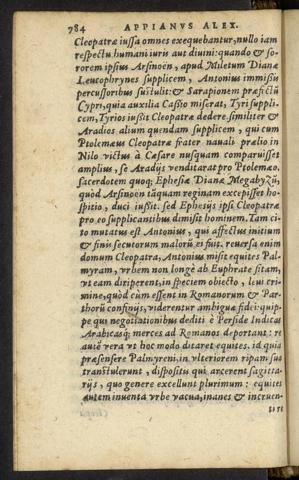 784 APPIANVS ALEX.
Cleopatræ iussa omnes exequebantur, nullo iam
respectu humani iuris aut diuini: quando & so-
rorem ipsius Arsinoën, apud Miletum Dianæ
Leucophrynes supplicem, Antonius immissis
percussoribus sustulit: & Sarapionem præfectũ
Cypri, quia auxilia Cassio miserat, Tyri suppli-
cem, Tyrios iussit Cleopatræ dedere. similiter &
Aradios alium quendam supplicem, qui cum
Ptolemæus Cleopatræ frater nauali prælio in
Nilo victus à Cæsare nusquam comparuisset
amplius, se Aradijs venditarat pro Ptolemæo.
sacerdotem quoq; Ephesiæ Dianæ Megabyzũ,
quòd Arsinoën tãquam reginam excepisset ho-
spitio, duci iussit. sed Ephesijs ipsi Cleopatræ
pro eo supplicantibus dimisit hominem. Tam ci-
to mutatus est Antonius, qui affectus initium
& finis secutorum malorũ ei fuit. reuersa enim
domum Cleopatra, Antonius misit equites Pal-
myram, vrbem non longè ab Euphrate sitam,
vt eam diriperent, in speciem obiecto, leui cri-
mine, quòd cùm essent in Romanorum & Par-
thorũ confinijs, viderentur ambiguæ fidei: quip-
pe qui negotiationibus dediti è Perside Indicas
Arabicasq; merces ad Romanos deportant: re
autẽ vera vt hoc modo ditaret equites. id quia
præsensere Palmyreni, in vlteriorem ripam sua
transtulerunt, dispositis qui arcerent sagitta-
rijs, quo genere excellunt plurimum: equites
autem inuenta vrbe vacua, inanes & incruen-